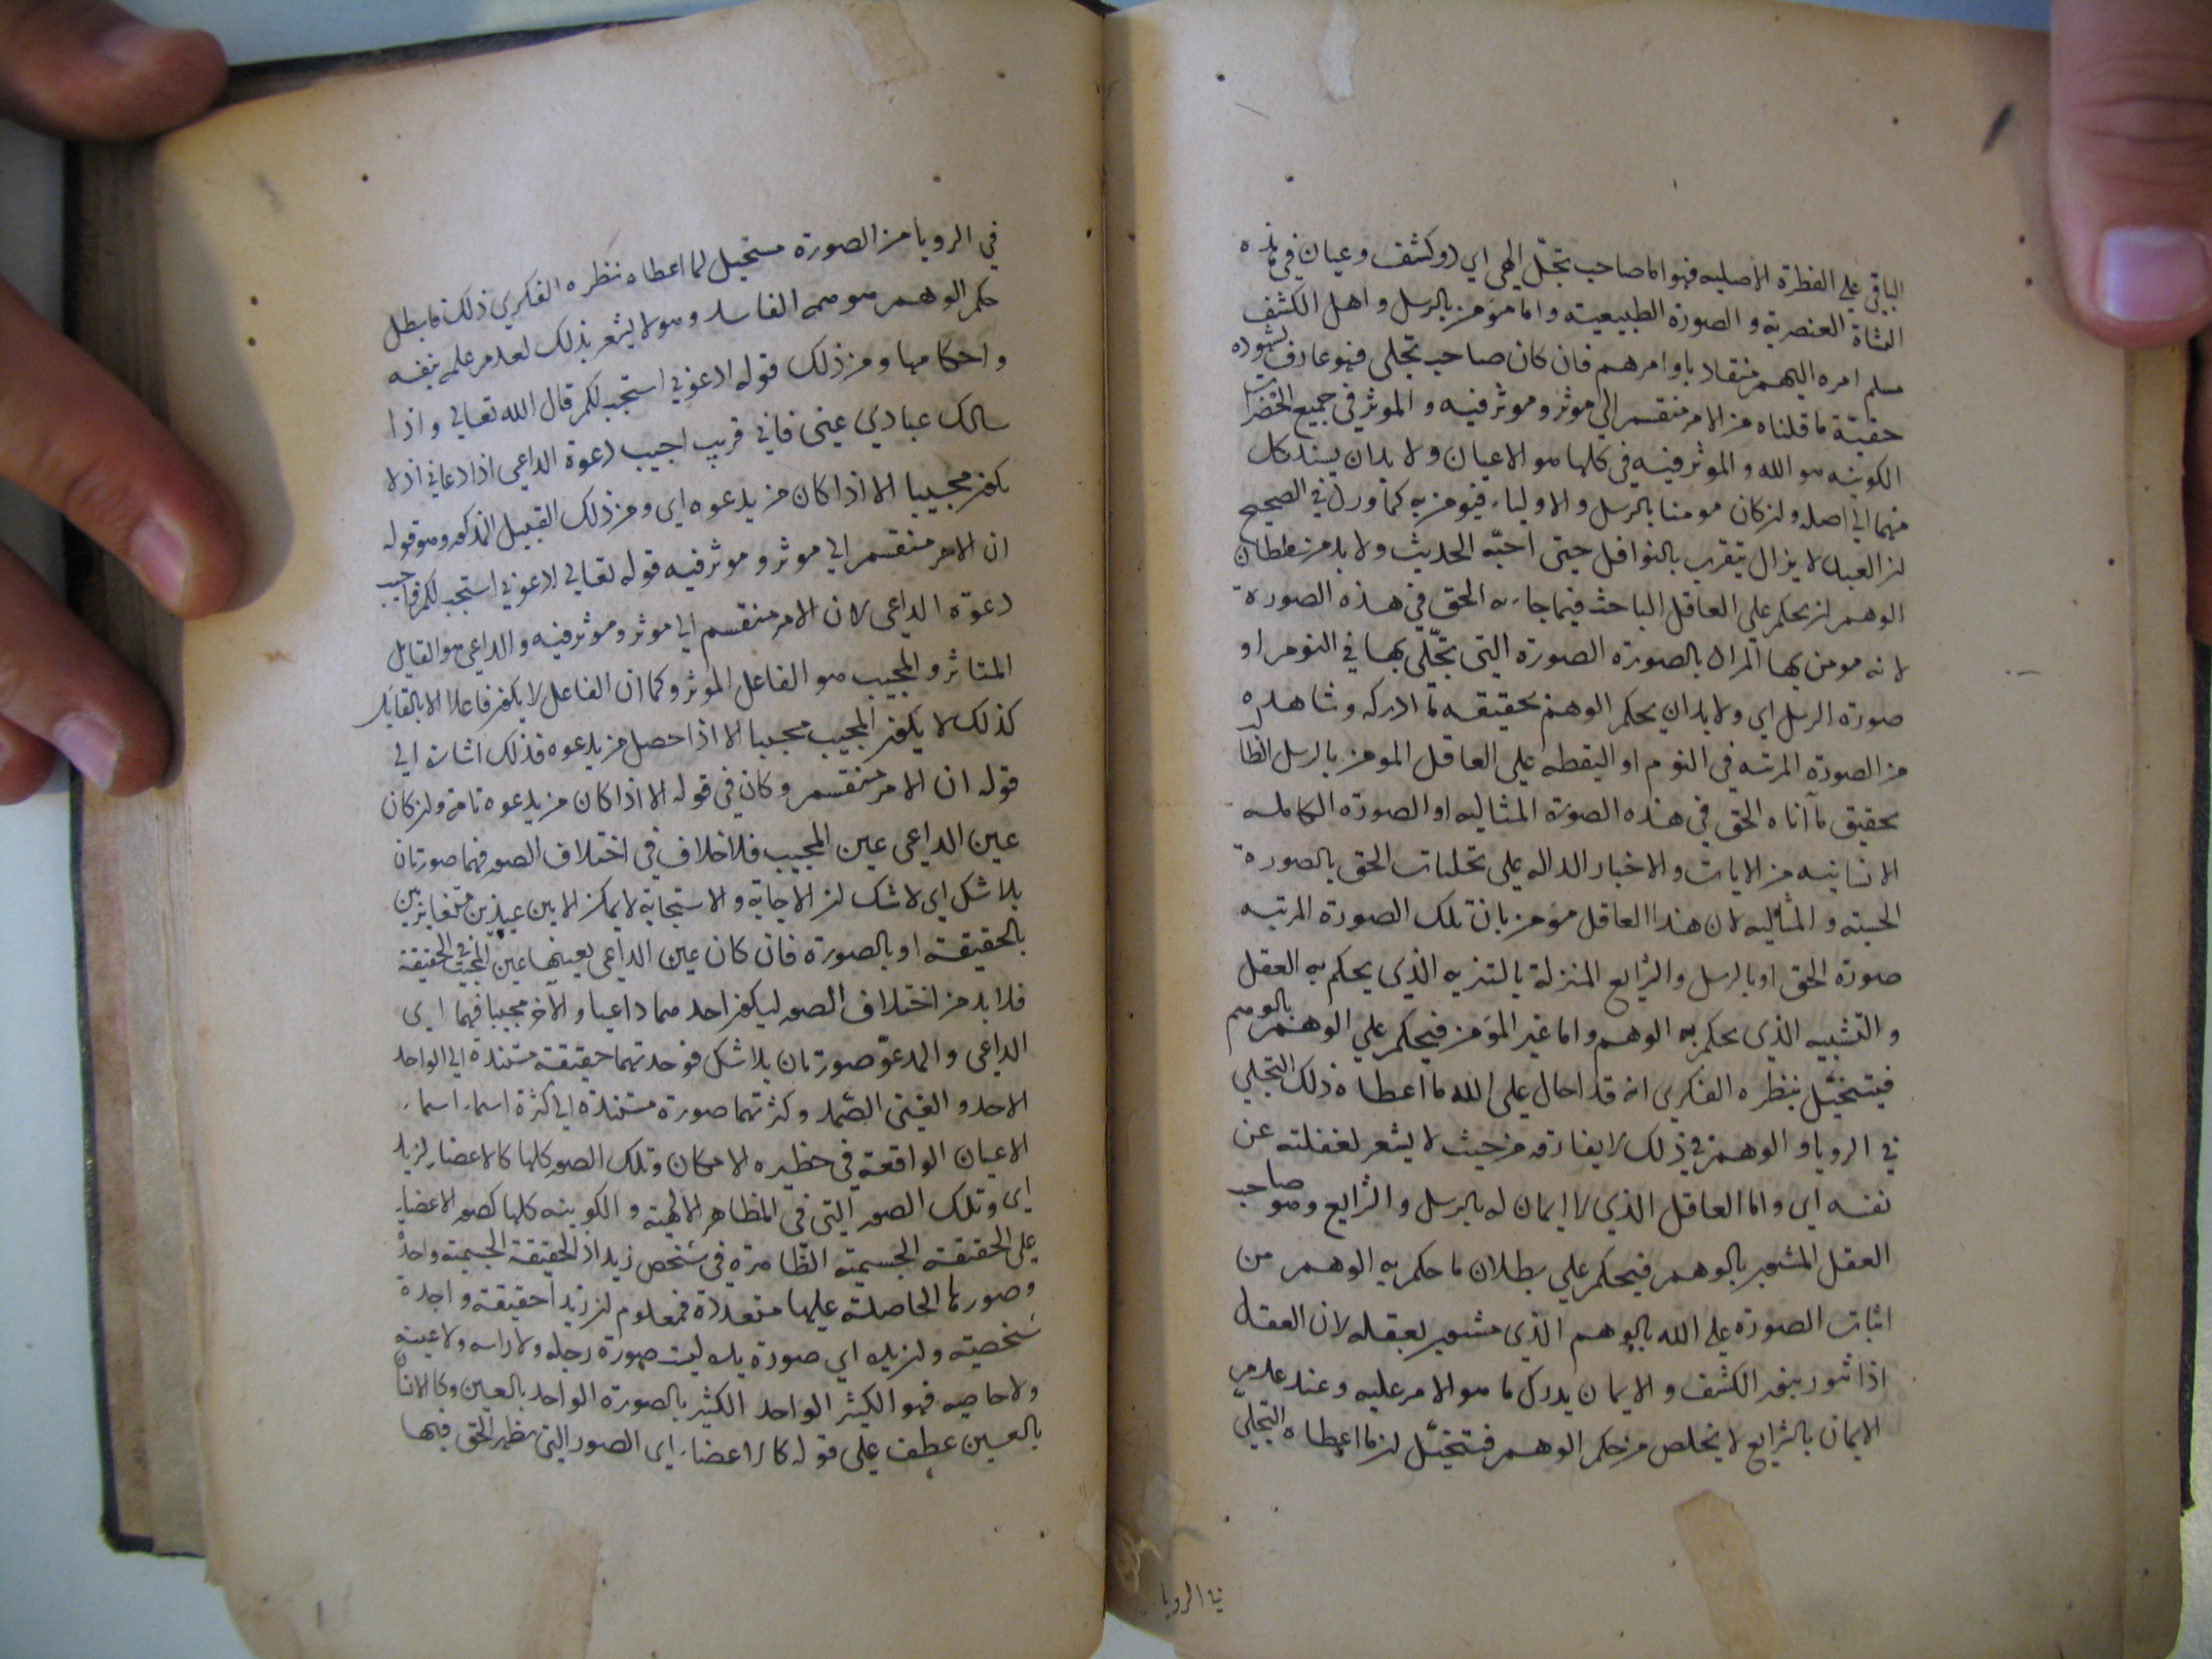 الباقي علي الفطرة الاصلية فهو اما صاحب تجلّ الهي اي ذو كشف وعيان في هذه
النشاة العنصرية و الصورة الطبيعية واما مؤمن بالرسل واهل الكشف
مسلم امره اليهم منقاد باوامرهم فان كان صاحب تجلي فهو عارف بشهوده
حقيّة ما قلناه من الامر منقسم الي موثر وموثر فيه و الموثر في جميع الحضرات
الكونيه هو الله و الموثر فيه في كلها هو الاعيان ولا بد ان يستند كل
منهما الي اصله ولن كان مومنا بالرسل و الاولياء فيومن به كما ورد في الصحيح
لن العبد لا يزال يتقرب بالنوافل حتى احبّه الحديث ولا بد من سلطان
الوهم لن يحكم علي العاقل الباحث فيما جاء به الحق في هذه الصورة
لانه مومن بها المراد بالصورة الصورة التي تجلّي بها في النوم او
صورة الرسل اي ولا بد ان يحكم الوهم بحقيقه ما ادركه وشاهده
من الصورة المرتبه في النوم او اليقظه علي العاقل المومن بالرسل
بحقيق ما اتاه الحق في هذه الصورة المثاليه او الصورة الكامله
الانسانيه من الايات و الاخبار الداله علي تجليات الحق بالصورة
الحسيه و المثاليه لان هذا العاقل مؤمن بان تلك الصورة المرتبه
صورة الحق او بالرسل والشرايع المنزلة بالتنزيه الذي يحكم به العقل
و التشبيه الذي يحكم به الوهم واما غير المؤمن فيحكم علي الوهم بالوهم
فيتخيّل بنظره الفكري انه قد احال علي الله ما اعطاه ذلك التجلي
في الرويا و الوهم في ذلك لا يفارقه من حيث لا يشعر لغفلته عن
نفسه اي واما العاقل الذي لا ايمان له بالرسل و الشرايع وهو صاحب
العقل المشوب بالوهم فيحكم علي بطلان ما حكم به الوهم من
اثبات الصورة علي الله بالوهم الذي مشوب بعقله لان العقل
اذا تنور بنور الكشف و الايمان يدرك ما هو الامر عليه وعند عدم
الايمان بالشرايع لا يخلص من حكم الوهم فيتخيّل لن ما اعطاه التجليّ
في الرويا
في الرويا من الصورة مستحيل لما اعطاه نظره الفكري ذلك فابطل
حكم الوهم بوهمه الفاسد وهو لا يشعر بذلك لعدم علمه بنفسه
واحكامها ومن ذلك قوله ادعوني استجب لكم قال الله تعالي و اذا
سالك عبادي عني فاني قريب اجيب دعوة الداعي اذا دعاني اذ لا
يكون مجيبا الا اذا كان من يدعوه اي ومن ذلك القبيل المذكور وهو قوله
ان الامر منقسم الي موثر و موثر فيه قوله تعالي ادعوني استجب لكم فاجيب
دعوة الداعي لان الامر منقسم الي موثر وموثر فيه و الداعي هو القابل
المتاثر و المجيب هو الفاعل الموثر وكما ان الفاعل لا يكون فاعلا الا بالقابل
كذلك لا يكون المجيب مجيبا الا اذا حصل من يدعوه فذلك اشارة الي
قوله ان الامر منقسم وكان في قوله الا اذا كان من يدعوه تامة ولن كان
عين الداعي عين المجيب فلا خلاف في اختلاف الصور فهما صورتان
بلا شك اي لا شك لن الاجابة و الاستجابة لا يمكن الا بين عينين متغايرتين
بالحقيقة او بالصورة فان كان عين الداعي بعينها عين المجيب في الحقيقة
فلا بد من اختلاف الصور ليكون احدهما داعيا و الاخر مجيبا فهما اي
الداعي و المدعوّ صورتان بلا شك فوحدتهما حقيقة مستندة الي الواحد
الاحد و الغني الصّمد وكثرتهما صورة مستندة الي كثرة اسماء اسماء
الاعيان الواقعة في حظيره الامكان وتلك الصور كلها كالاعضاء لزيد
اي وتلك الصور التي في المظاهر الالهية و الكونيه كلها كصور الاعضاء
علي الحقيقة الجسمية الظاهرة في شخص زيد اذ الحقيقة الجسمية واحدة
وصورها الحاصلة عليها متعددة فمعلوم لن زيدا حقيقة واحدة
شخصية ولن يده اي صورة يده ليست صورة رجله ولا راسه ولا عينه
ولا حاجبه فهو الكثير الواحد الكثير بالصورة الواحد بالعين وكالانسان
بالعين عطف علي قوله كالاعضاء اي الصور التي يظهر الحق فيها